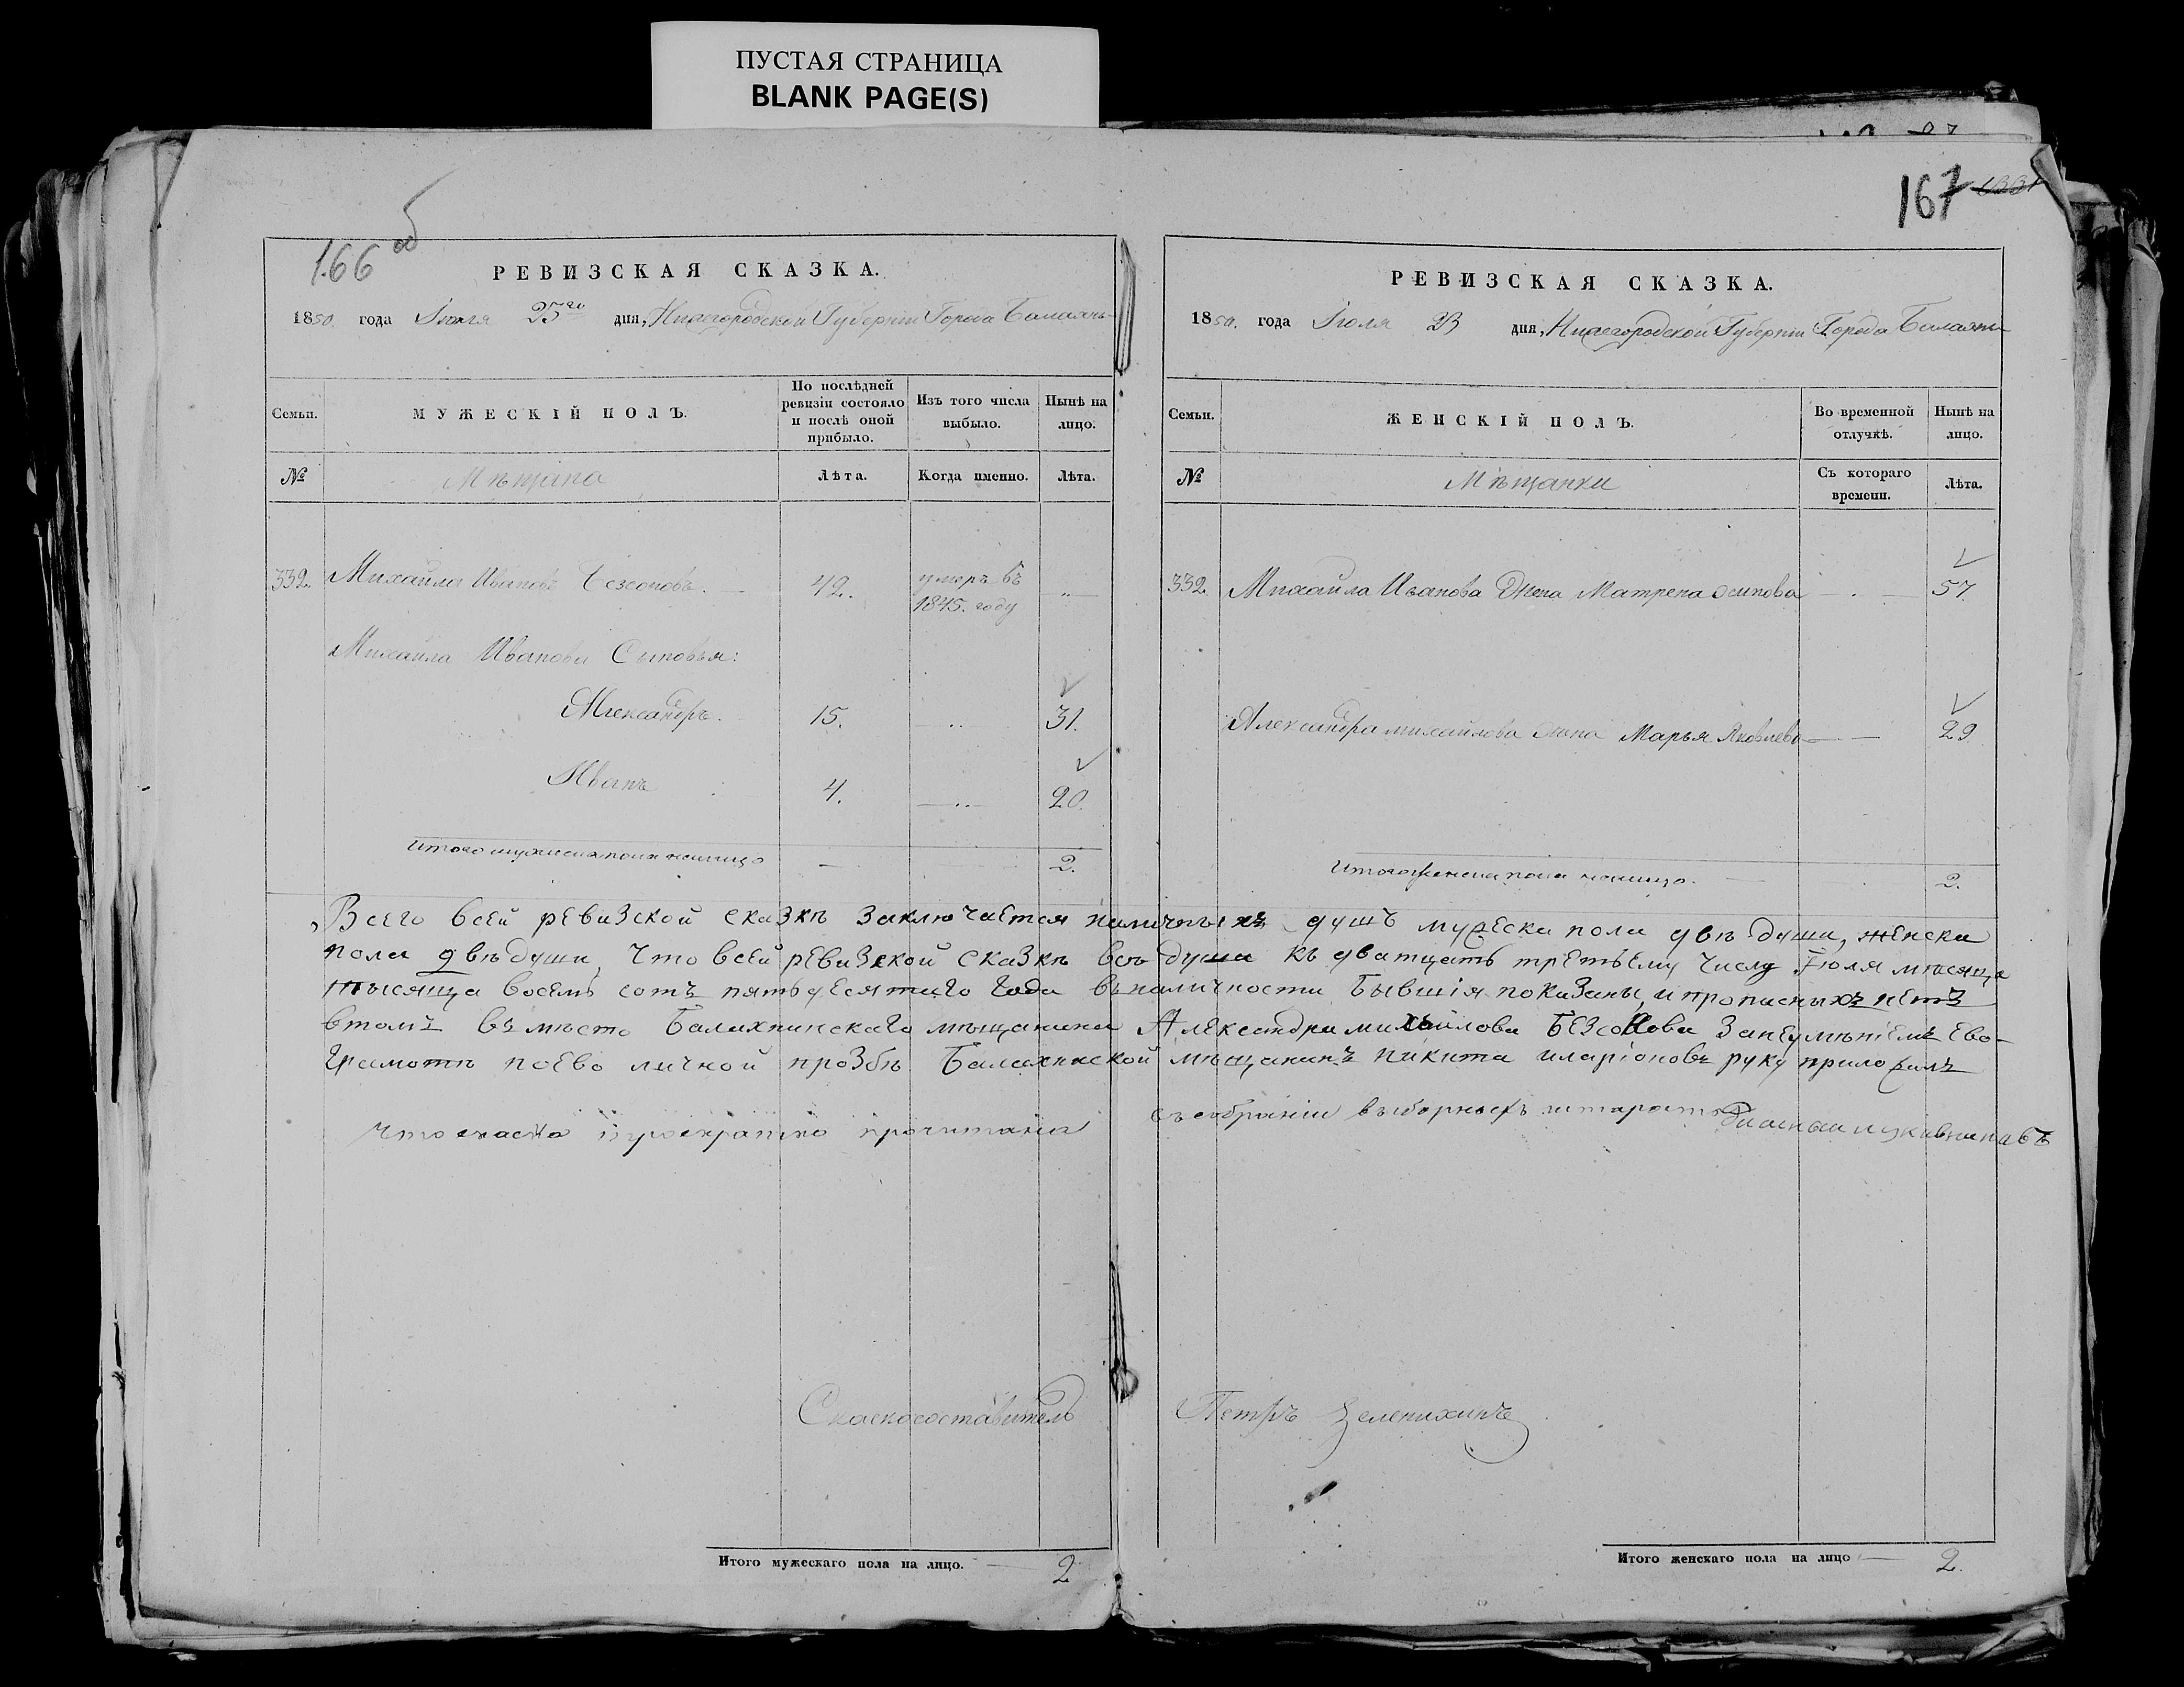 ПУСТАЯ СТРАНИЦА
BLANK PAGE(S)
166 об
РЕВИЗСКАЯ СКАЗКА.
1850. года Іюля 23го дня, Нижегородской Губерніи Города Балахны
Семьи.
МУЖЕСКІЙ ПОЛЪ.
По послѣдней ревизіи состояло и послѣ оной прибыло.
Изъ того числа выбыло.
Нынѣ на лицо.
№
Мѣщана
Лѣта.
Когда именно.
Лѣта.
332. Михайла Ивановъ Безсоновъ. 42. умеръ въ 1845. году
Михайла Иванова Сыновья:
Александръ. 15. 31.
Иванъ 4. 20.
Итого мужеска пола налицо 2.
167
РЕВИЗСКАЯ СКАЗКА.
1850. года Іюля 23 дня, Нижегородской Губерніи Города Балахны
Семьи.
ЖЕНСКІЙ ПОЛЪ.
Во временной отлучкѣ.
Нынѣ на лицо.
№
Мѣщанки
Съ котораго времени.
Лѣта.
332. Михайла Иванова Жена Матрена Осипова 57.
Александра михайлова жена Марья Яковлева 29
Итого женска пола налицо. 2.
Всего всеи ревизской сказкѣ заключается наличныхъ душъ мужеска пола двѣ души, женска
пола двѣ души, что всеи ревизской сказкѣ всѣ души къ дватцать третьему числу Іюля мѣсяца
тысяща восемь сотъ пятьдесятаго года въ наличности бывшія показаны, и прописныхъ нетъ
втомъ въ место Балахнинскаго мѣщанина Александра михайлова Безсонова занеумѣніемъ ево
грамотѣ поево личной прозбѣ Балахнской мѣщанинъ никита иларіоновъ руку приложилъ
что скаска троекратно прочитана въ собраніи выборныхъ и старость
Скаскосоставитель Петръ Зеленихинъ
Итого мужескаго пола на лицо. 2
Итого женскаго пола на лицо 2.